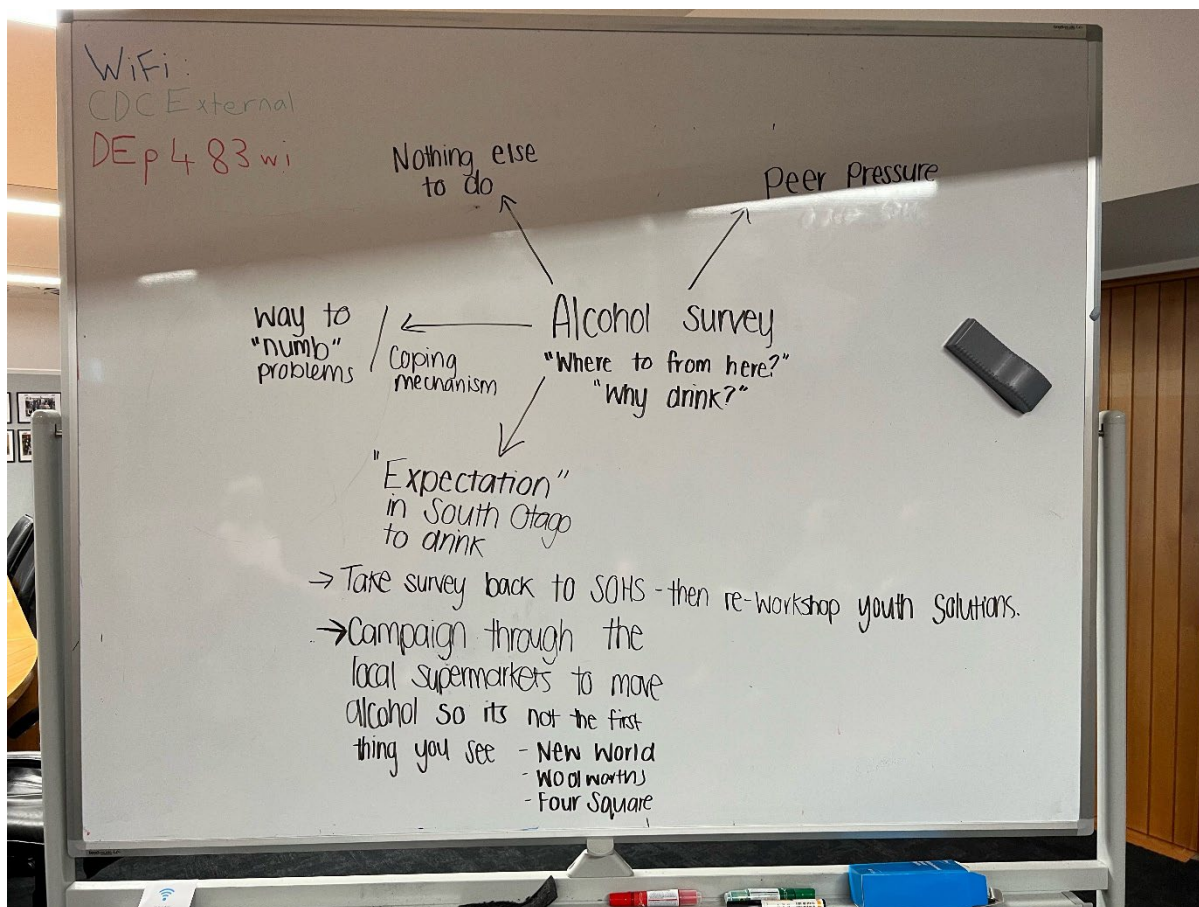 WiFi:
CDC External
DEp483wi
Nothing else
to do
Peer Pressure
Alcohol survey
"Where to from here?"
"Why drink?"
Way to
"numb"
problems
/
Coping
mechanism
"Expectation"
in South Otago
to drink
→ Take survey back to SOHS - then re-workshop youth solutions.
→ Campaign through the
local supermarkets to move
alcohol so its not the first
thing you see - New World
- Woolworths
- Four Square